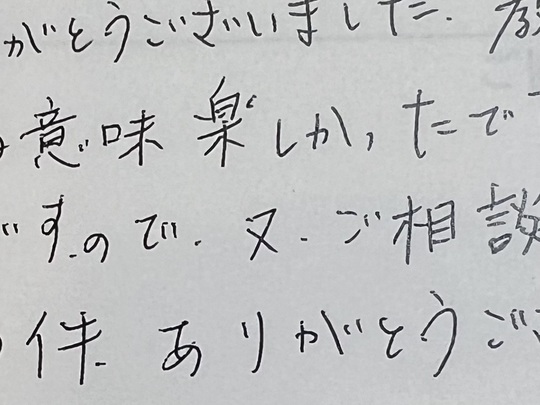 がとうございました.
意味 楽しかったで
ですので. 又. ご相談
件. ありがとうご